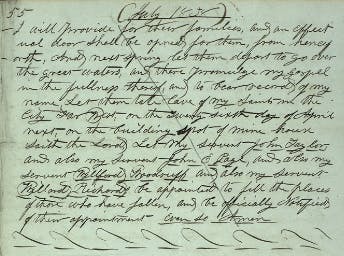 55 (July 1838)
I will provide for their families, and an effect
ual door shall be opened for them, from hencef
orth, And next spring let them depart to go over
the great waters, and there promulge my gospel
in the fullness thereof, and to bear record of my
name. Let them take leave of my Saints in the
City Far West, on the Twenty sixth day of April
next, on the building spot of mine house
saith the Lord, Let my servent John Taylor
and also my servent John E. Page, and also my
servent Willford Woodruff and also my servent
Willard Richards be appointed to fill the places
of those who have fallen, and be officially Notified
of their appointment even so Amen